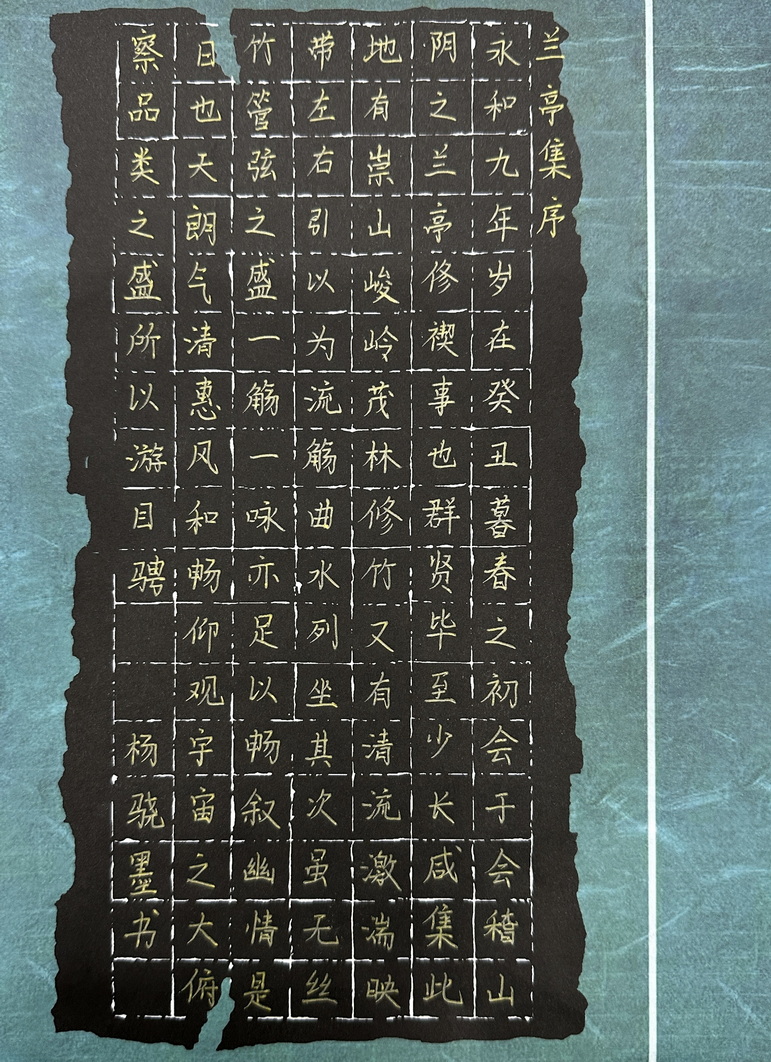 兰亭集序
永和九年岁在癸丑暮春之初会于会稽山
阴之兰亭修禊事也群贤毕至少长咸集此
地有崇山峻岭茂林修竹又有清流激湍映
带左右引以为流觞曲水列坐其次虽无丝
竹管弦之盛一觞一咏亦足以畅叙幽情是
日也天朗气清惠风和畅仰观宇宙之大俯
察品类之盛所以游目骋
杨骁墨书